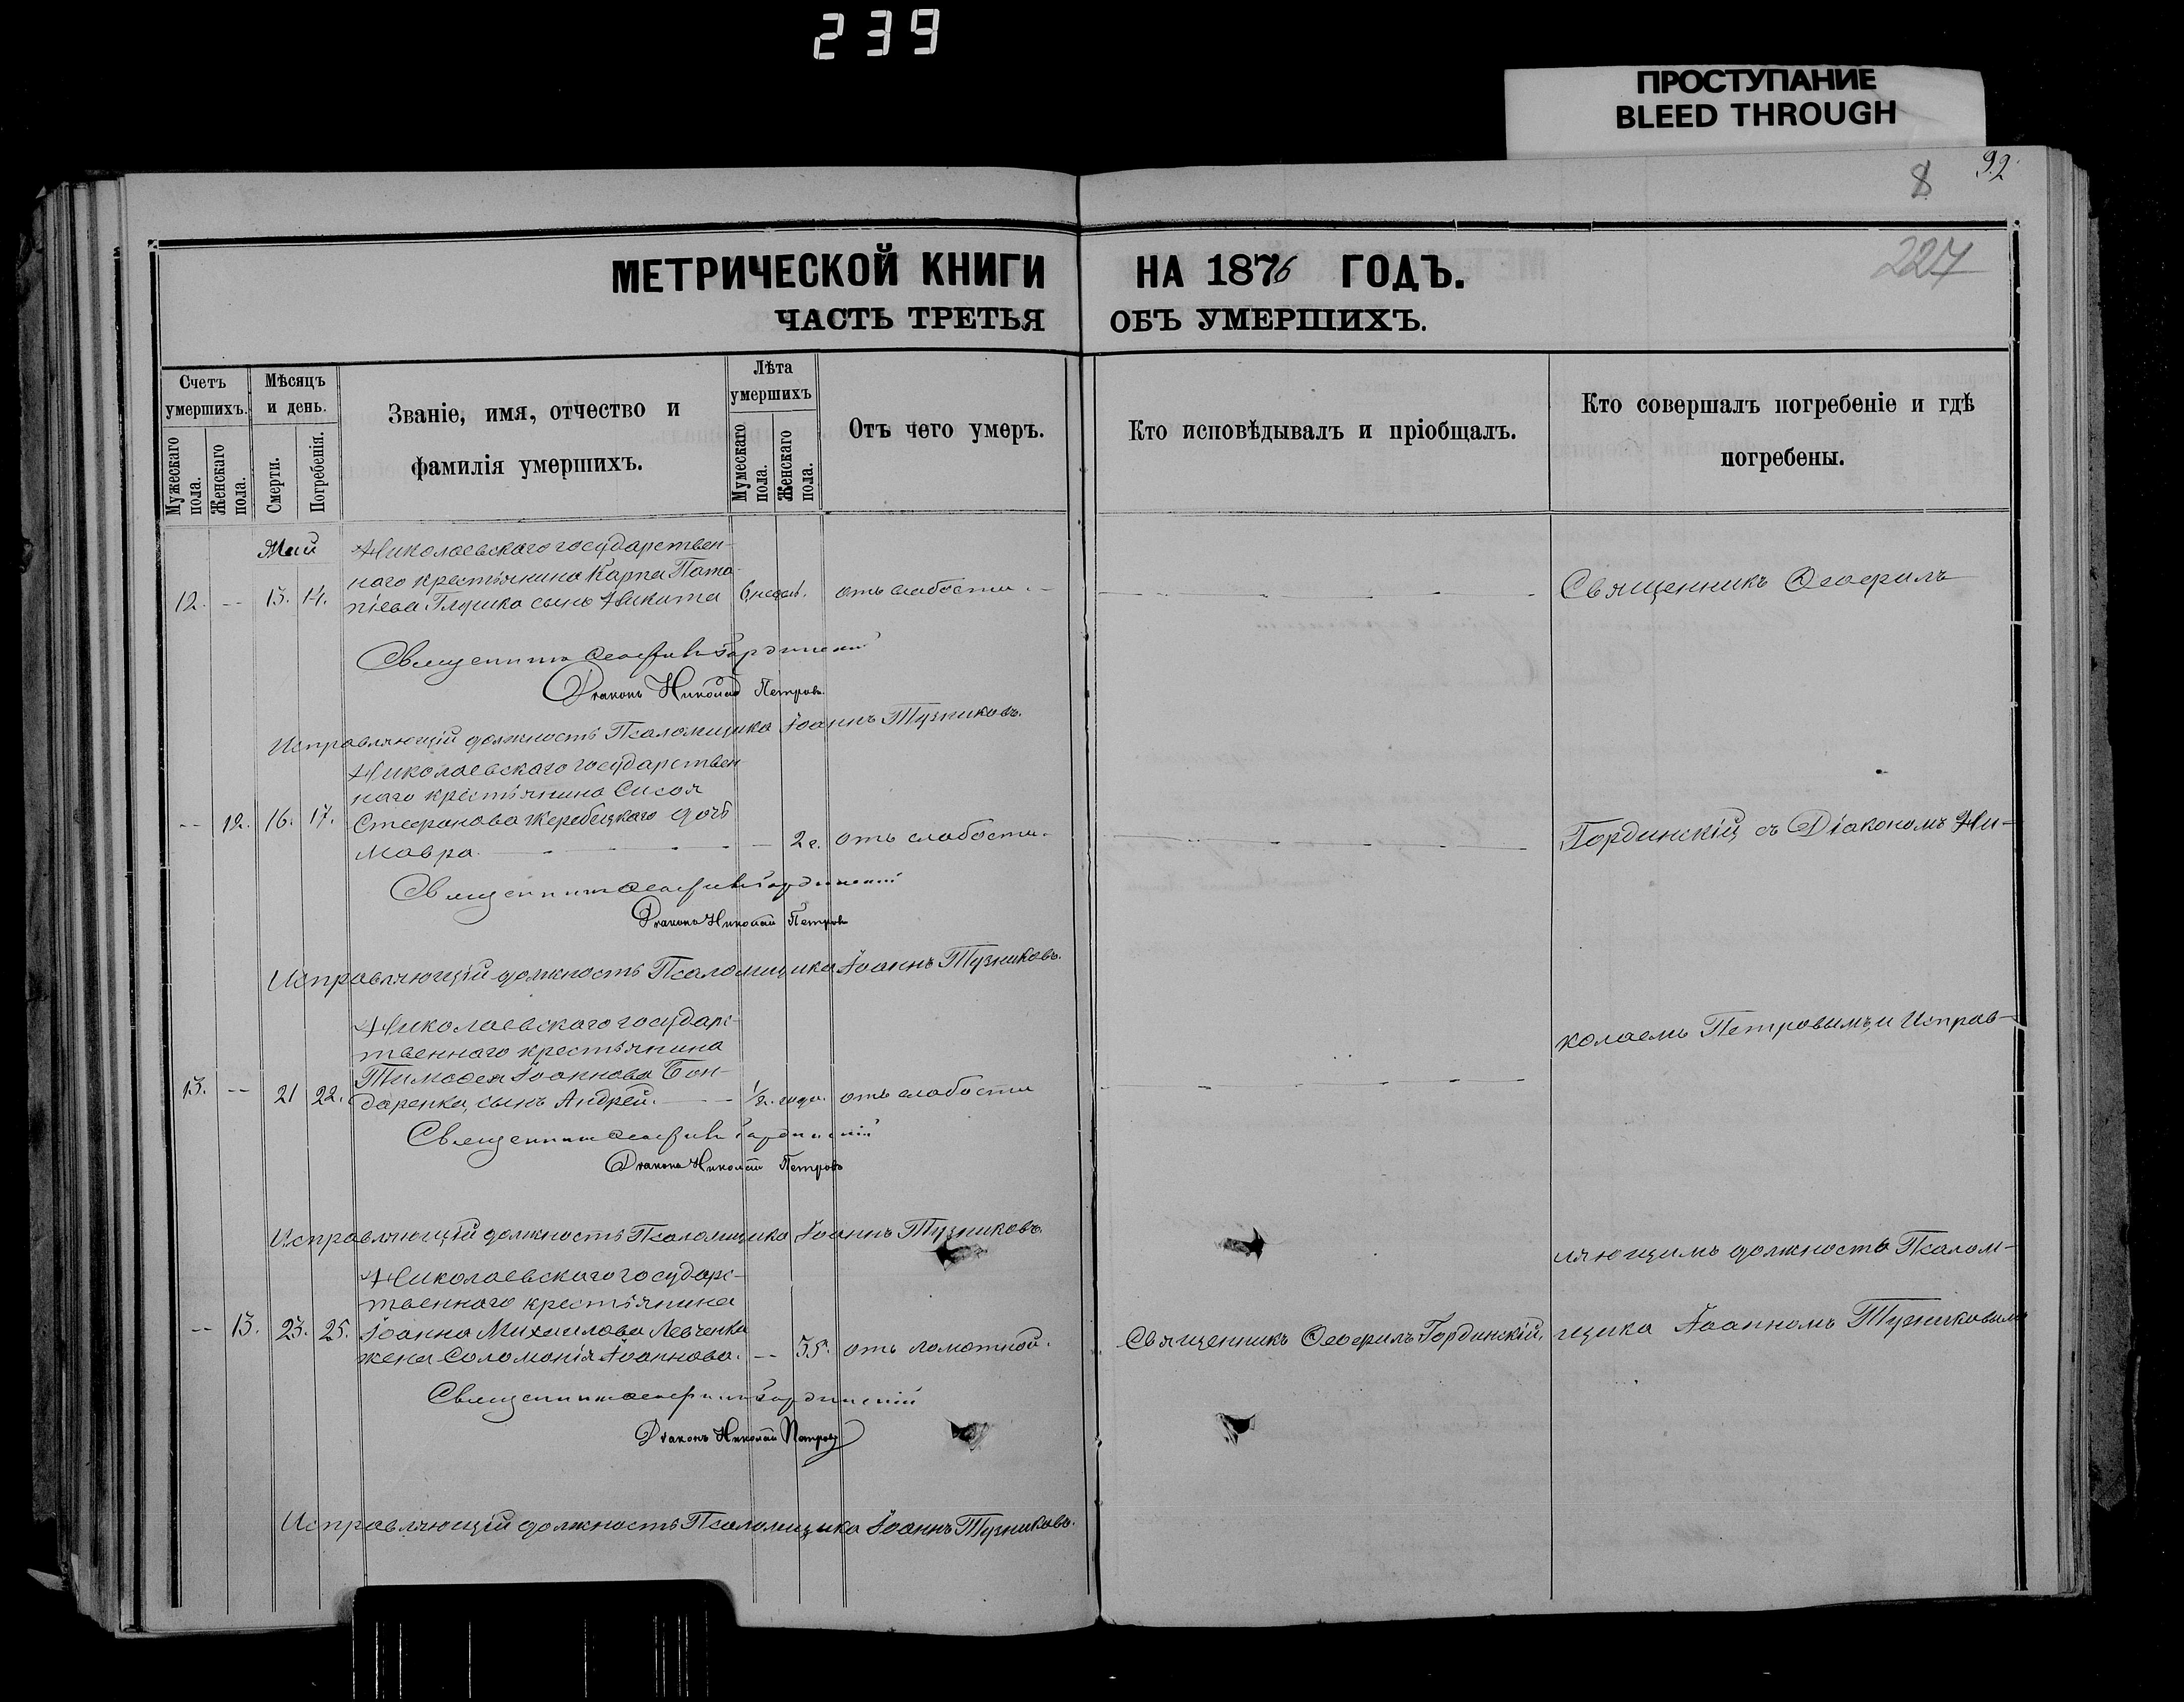 239
ПРОСТУПАНИЕ
BLEED THROUGH
8 92.
227
МЕТРИЧЕСКОЙ КНИГИ НА 1876 ГОДЪ.
ЧАСТЬ ТРЕТЬЯ ОБЪ УМЕРШИХЪ.
Счетъ умершихъ.
Мужескаго пола.
Женскаго пола.
Мѣсяцъ и день.
Смерти.
Погребенія.
Званіе, имя, отчество и
фамилія умершихъ.
Лѣта умершихъ
Мумескаго пола.
Женскаго пола.
Отъ чего умеръ.
Кто исповѣдывалъ и пріобщалъ.
Кто совершалъ погребеніе и гдѣ
погребены.
Май
Николаевскаго государствен-
наго крестьянина Карпа Пата-
12. -- 13. 14. піева сынъ Никита 6 недѣл. отъ слабости.
Священникъ Ѳеофилъ
Священникъ Ѳеофилъ Гординскій
Діаконъ Николай Петровъ.
Исправляющій должность Псаломщика Іоаннъ Тузниковъ.
Николаевскаго государствен-
наго крестьянина Сисоя
-- 12. 16. 17. Стефанова Жеребецкаго дочь
Мавра. -- 2 г. отъ слабости.
Гординскій, съ Діакономъ Ни-
Священникъ Ѳеофилъ Гординскій
Діаконъ Николай Петровъ
Исправляющій должность Псаломщика Іоаннъ Тузниковъ.
Николаевскаго государс-
твеннаго крестьянина
Тимоѳея Іоаннова Бон-
13. -- 21 22. даренка, сынъ Андрей. -- 1/2. года. отъ слабости
колаемъ Петровымъ, и Исправ-
Священникъ Ѳеофилъ Гординскій
Діаконъ Николай Петровъ
Исправляющій должность Псаломщика Іоаннъ Тузниковъ.
ляющимъ должность Псалом-
Николаевскаго государс-
твеннаго крестьянина
-- 13. 23. 25. Іоанна Михаилова Левченка
жена Соломонія Іоаннова. -- 35. отъ ломотной.
Священникъ Ѳеофилъ Гординскій,
щика Іоанномъ Тузниковымъ
Священникъ Ѳеофилъ Гординскій
Діаконъ Николай Петровъ
Исправляющій должность Псаломщика Іоаннъ Тузниковъ.